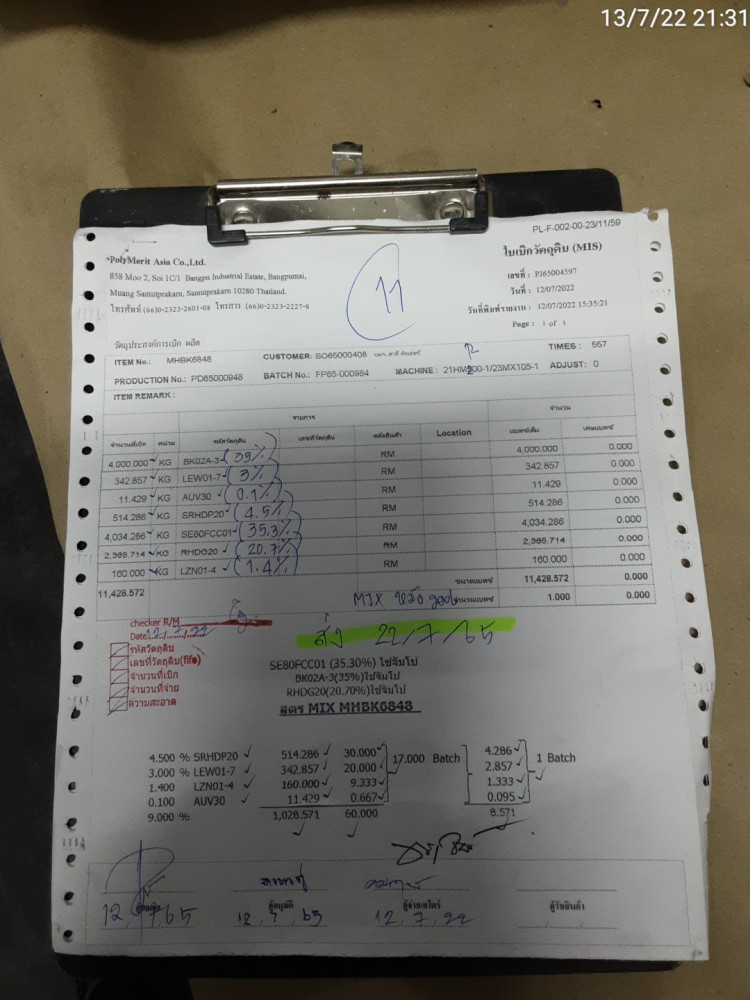 13/7/22 21:31
PL-F-002-00-23/11/59
PolyMerit Asia Co.,Ltd.
858 Moo 2, Soi 1C/1 Bangpu Industrial Estate, Bangpumai,
Muang Samutprakarn, Samutprakarn 10280 Thailand.
โทรศัพท์ (66)0-2323-2601-08 โทรสาร (66)0-2323-2227-8
11
ใบเบิกวัตถุดิบ (MIS)
เลขที่ : PJ65004597
วันที่ : 12/07/2022
วันที่พิมพ์รายงาน : 12/07/2022 15:35:21
Page : 1 of 1
วัตถุประสงค์การเบิก ผลิต
ITEM No.: MHBK6848 CUSTOMER: SO65000408 TIMES : 557
PRODUCTION No.: PD65000948 BATCH No.: FP65-000984 MACHINE : 21HM200-1/23MX105-1 ADJUST: 0
ITEM REMARK :
รายการ จำนวน
จำนวนที่เบิก หน่วย รหัสวัตถุดิบ เลขที่วัตถุดิบ คลังสินค้า Location แบทช์เต็ม เศษแบทช์
4,000.000 KG BK02A-3 (35%) RM 4,000.000 0.000
342.857 KG LEW01-7 (3%) RM 342.857 0.000
11.429 KG AUV30 (0.1%) RM 11.429 0.000
514.286 KG SRHDP20 (4.5%) RM 514.286 0.000
4,034.286 KG SE80FCC01 (35.3%) RM 4,034.286 0.000
2,365.714 KG RHDG20 (20.7%) RM 2,365.714 0.000
160.000 KG LZN01-4 (1.4%) RM 160.000 0.000
11,428.572 ขนาดแบทช์ 11,428.572 0.000
MIX จำนวนแบทช์ 1.000 0.000
checker R/M
Date 12/7/22
รหัสวัตถุดิบ
เลขที่วัตถุดิบ(fifo)
จำนวนที่เบิก
จำนวนที่จ่าย
ความสะอาด
ส่ง 22/7/65
SE80FCC01 (35.30%) ใช้จัมโบ้
BK02A-3(35%)ใช้จัมโบ้
RHDG20(20.70%)ใช้จัมโบ้
สูตร MIX MHBK6848
4.500 % SRHDP20 514.286 30.000 17.000 Batch 4.286 1 Batch
3.000 % LEW01-7 342.857 20.000 2.857
1.400 LZN01-4 160.000 9.333 1.333
0.100 AUV30 11.429 0.667 0.095
9.000 % 1,028.571 60.000 8.571
ผู้อนุมัติ ผู้จ่าย/สโตร์ ผู้รับสินค้า
12.7.65 12.7.65 12.7.22